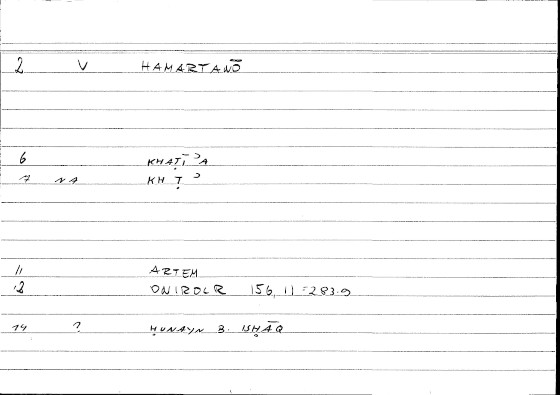 2 V HAMARTANŌ
6 KHAṬĪʾA
7 NA KHṬʾ
11 ARTEM
12 ONIROCR 156, 11 = 283.9
14 ? ḤUNAYN B. ISḤĀQ